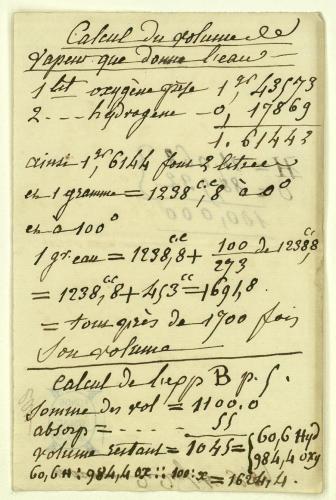 Calcul du volume de
vapeur que donne l'eau
1 lit oxygène pèse 1,gr 43573
2 ... hydrogene - 0, 17869
1.61442
ainsi 1gr,6144 font 2 litres
en 1 gramme = 1238c.c,8 à 0°
en à 100°
1 gr. eau = 1238,8c.c + 100/273 de 1238c.c,8
= 1238c.c,8 + 453c.c = 1691,8c.c
= tout près de 1700 fois
son volume
Calcul de l'app B p. 5.
Somme des vol = 1100.0
absorp = - - - - 55
volume restant = 1045 = { 60,6 Hyd
984,4 oxy
60,6 H : 984,4 ox :: 100 : x = 1624,4.